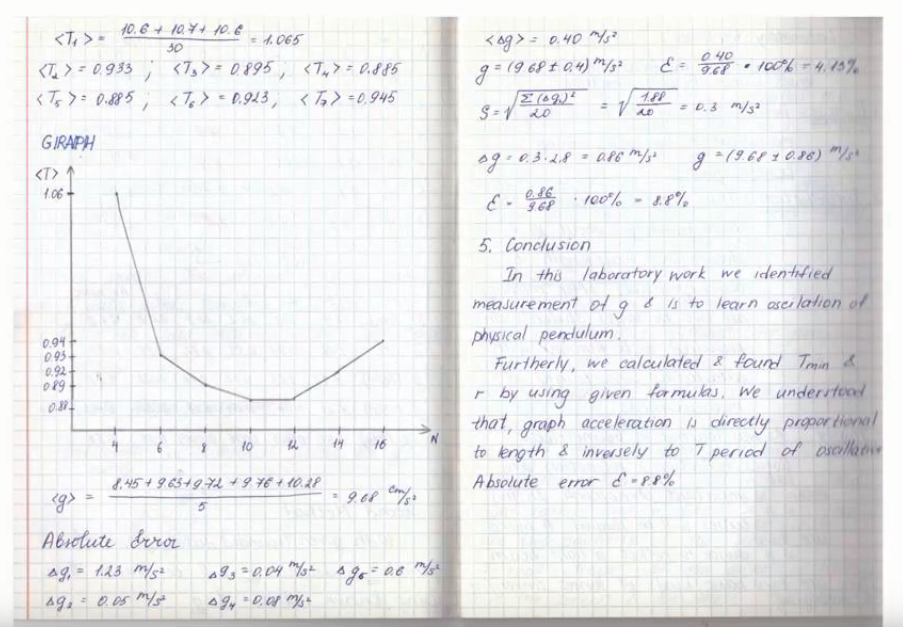 <T₁> = (10.6 + 10.7 + 10.6)/30 = 1.065
<T₂> = 0.933 ; <T₃> = 0.895 , <T₄> = 0.885
<T₅> = 0.885 ; <T₆> = 0.923, <T₇> = 0.945
GRAPH
<T>
1.06
0.94
0.93
0.92
0.89
0.88
4 6 8 10 12 14 16 N
<g> = (8.45 + 9.63 + 9.72 + 9.76 + 10.28)/5 = 9.68 cm/s²
Absolute Error
Δg₁ = 1.23 m/s² Δg₃ = 0.04 m/s² Δg₅ = 0.6 m/s²
Δg₂ = 0.05 m/s² Δg₄ = 0.08 m/s²
<Δg> = 0.40 m/s²
g = (9.68 ± 0.4) m/s² Ɛ = 0.40/9.68 • 100% = 4.13%
S = √(Σ(Δgᵢ)²/20) = √(1.88/20) = 0.3 m/s²
Δg = 0.3 · 2.8 = 0.86 m/s² g = (9.68 ± 0.86) m/s²
Ɛ = 0.86/9.68 · 100% = 8.8%
5. Conclusion
In this laboratory work we identified
measurement of g & is to learn oscilation of
physical pendulum.
Furtherly, we calculated & found Tmin &
r by using given formulas. We understood
that, graph acceleration is directly proportional
to length & inversely to T period of oscillation
Absolute error Ɛ = 8.8%